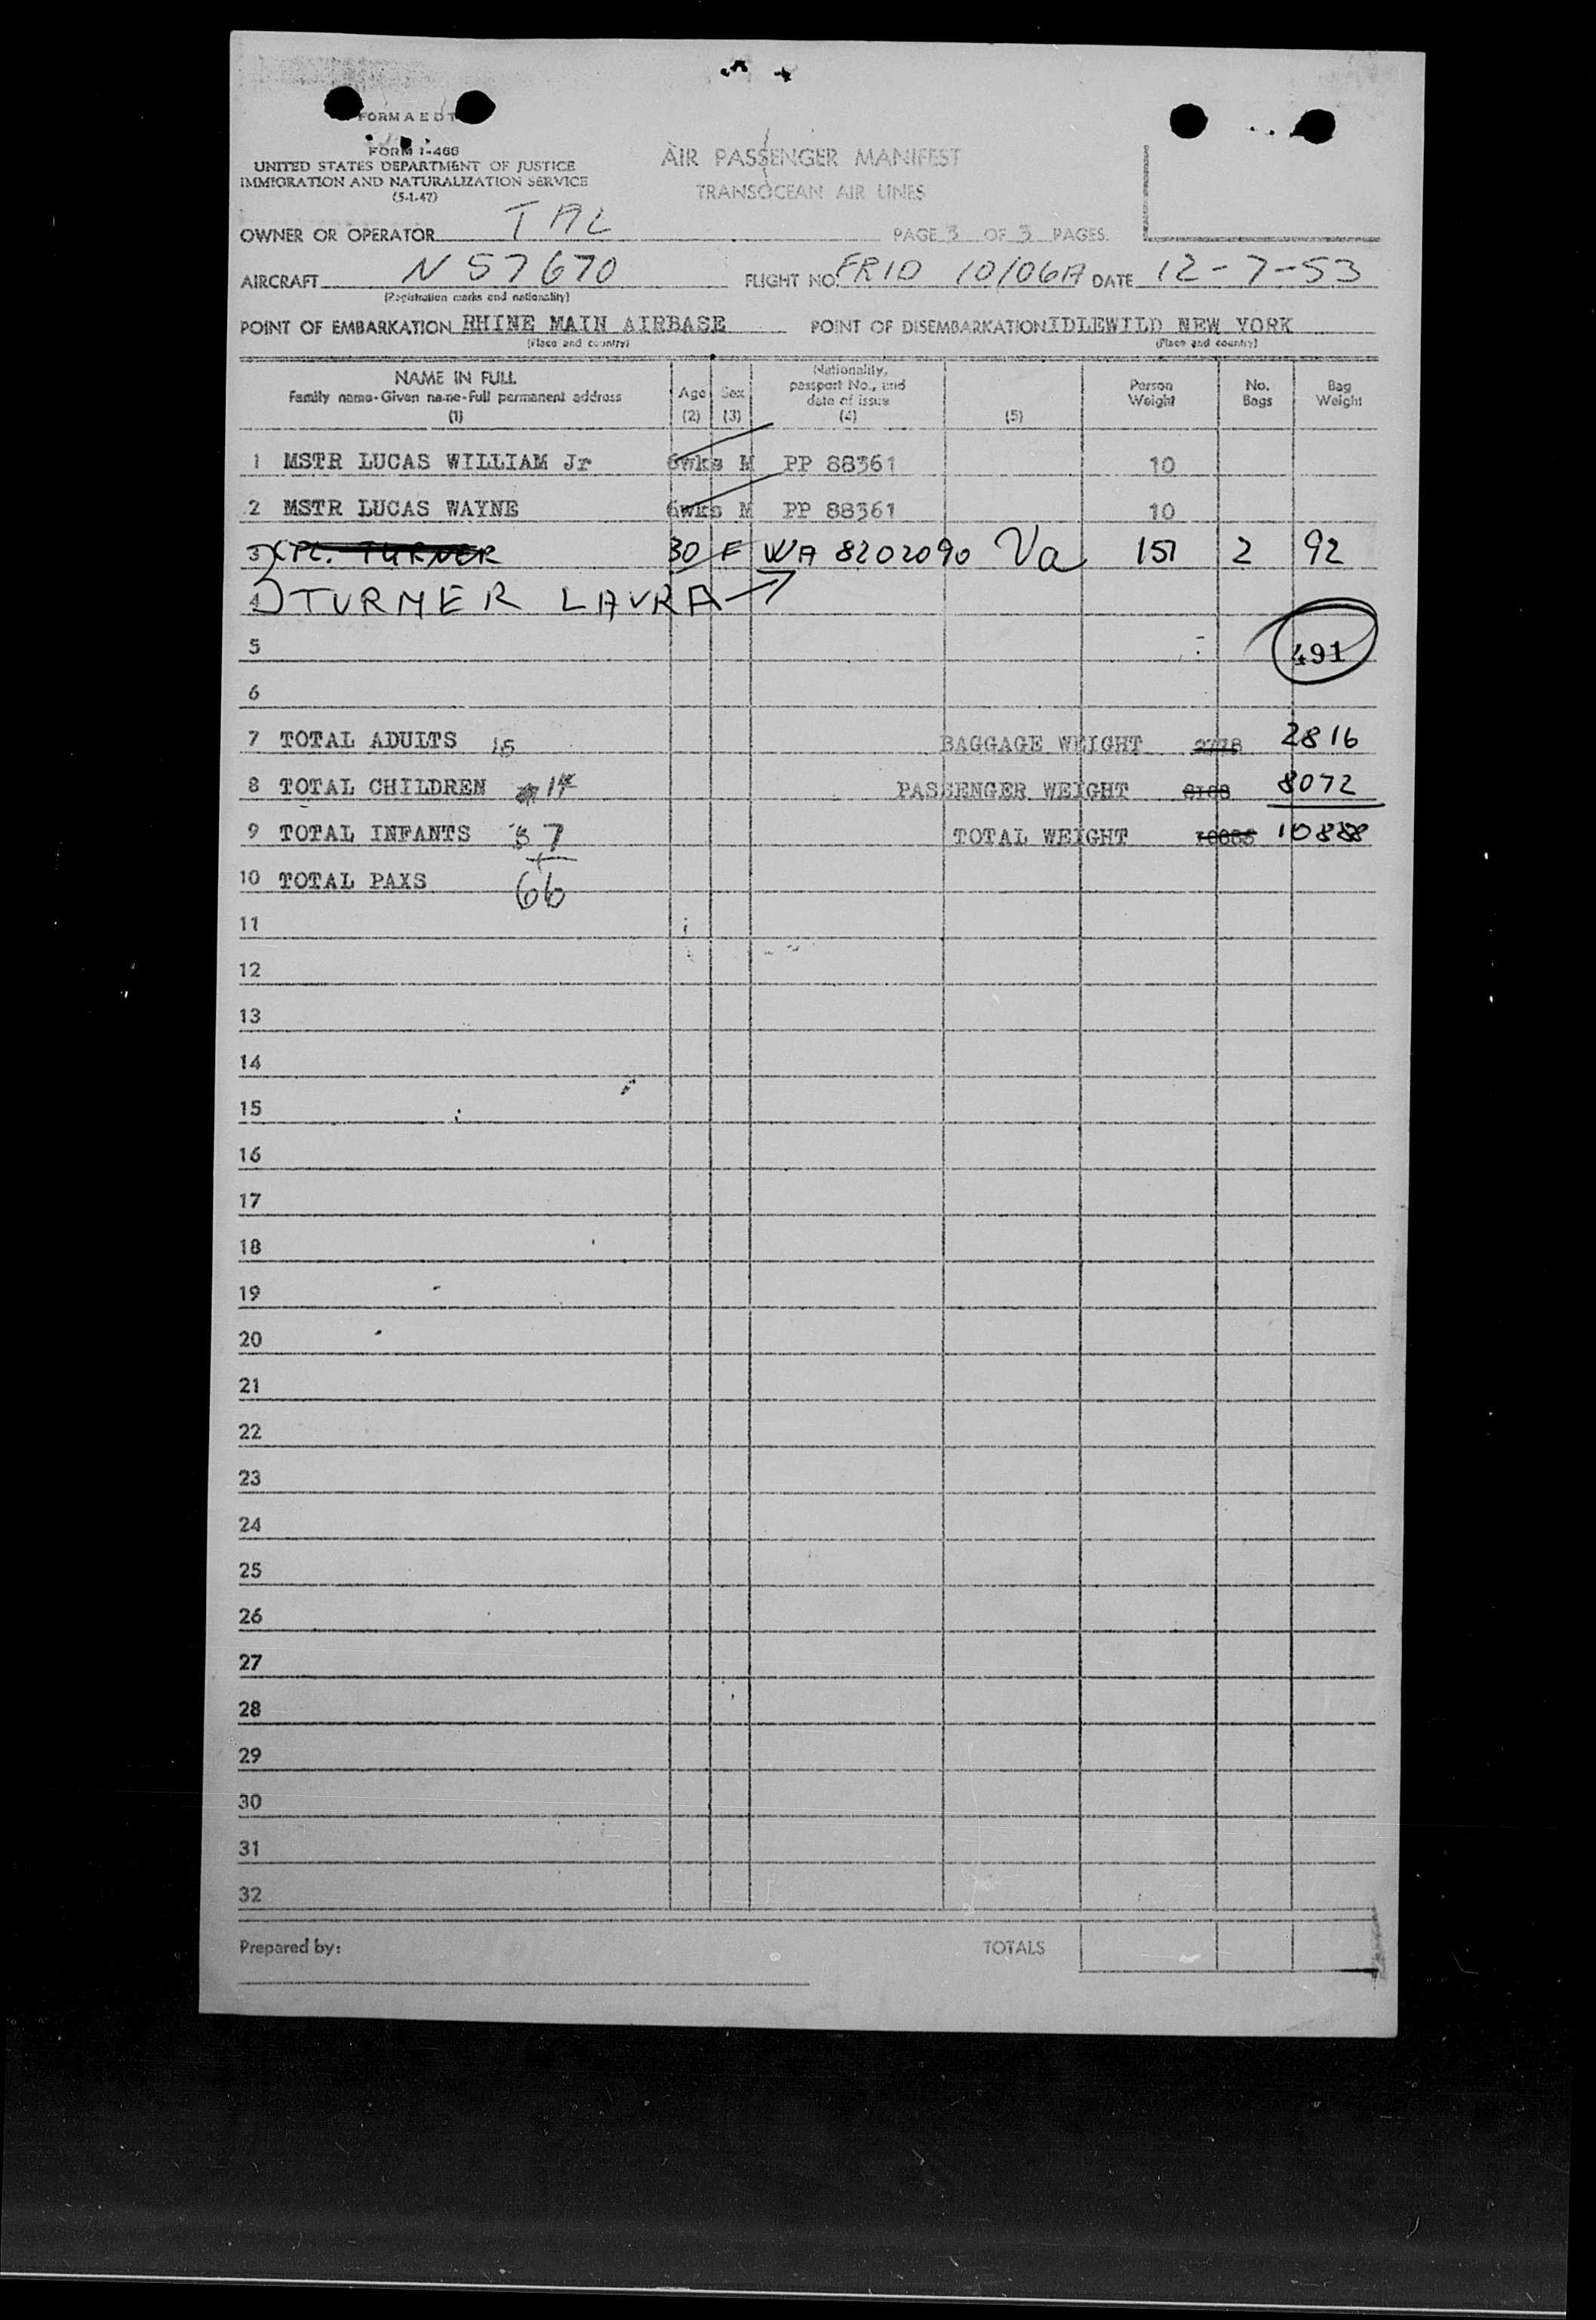 FORM A E D T
FORM I-466
UNITED STATES DEPARTMENT OF JUSTICE
IMMIGRATION AND NATURALIZATION SERVICE
(5-1-47)
AIR PASSENGER MANIFEST
TRANSOCEAN AIR LINES
OWNER OR OPERATOR TAL PAGE 3 OF 3 PAGES.
AIRCRAFT N57670 FLIGHT NO. FRID 10/06A DATE 12-7-53
(Registration marks and nationality)
POINT OF EMBARKATION RHINE MAIN AIRBASE POINT OF DISEMBARKATION IDLEWILD NEW YORK
(Place and country) (Place and country)
NAME IN FULL
Family name-Given name-Full permanent address
(1)
Age
(2)
Sex
(3)
Nationality,
passport No., and
date of issue
(4)
(5)
Person
Weight
No.
Bags
Bag
Weight
1 MSTR LUCAS WILLIAM Jr 6wks M PP 88361 10
2 MSTR LUCAS WAYNE 6wks M PP 88361 10
3 CPL. TURNER 30 F WA 8202090 Va 151 2 92
4 TURNER LAURA
5 491
6
7 TOTAL ADULTS BAGGAGE WEIGHT 2778 2816
8 TOTAL CHILDREN PASSENGER WEIGHT 8072
9 TOTAL INFANTS 7 TOTAL WEIGHT 10888
10 TOTAL PAXS 66
11
12
13
14
15
16
17
18
19
20
21
22
23
24
25
26
27
28
29
30
31
32
Prepared by: TOTALS